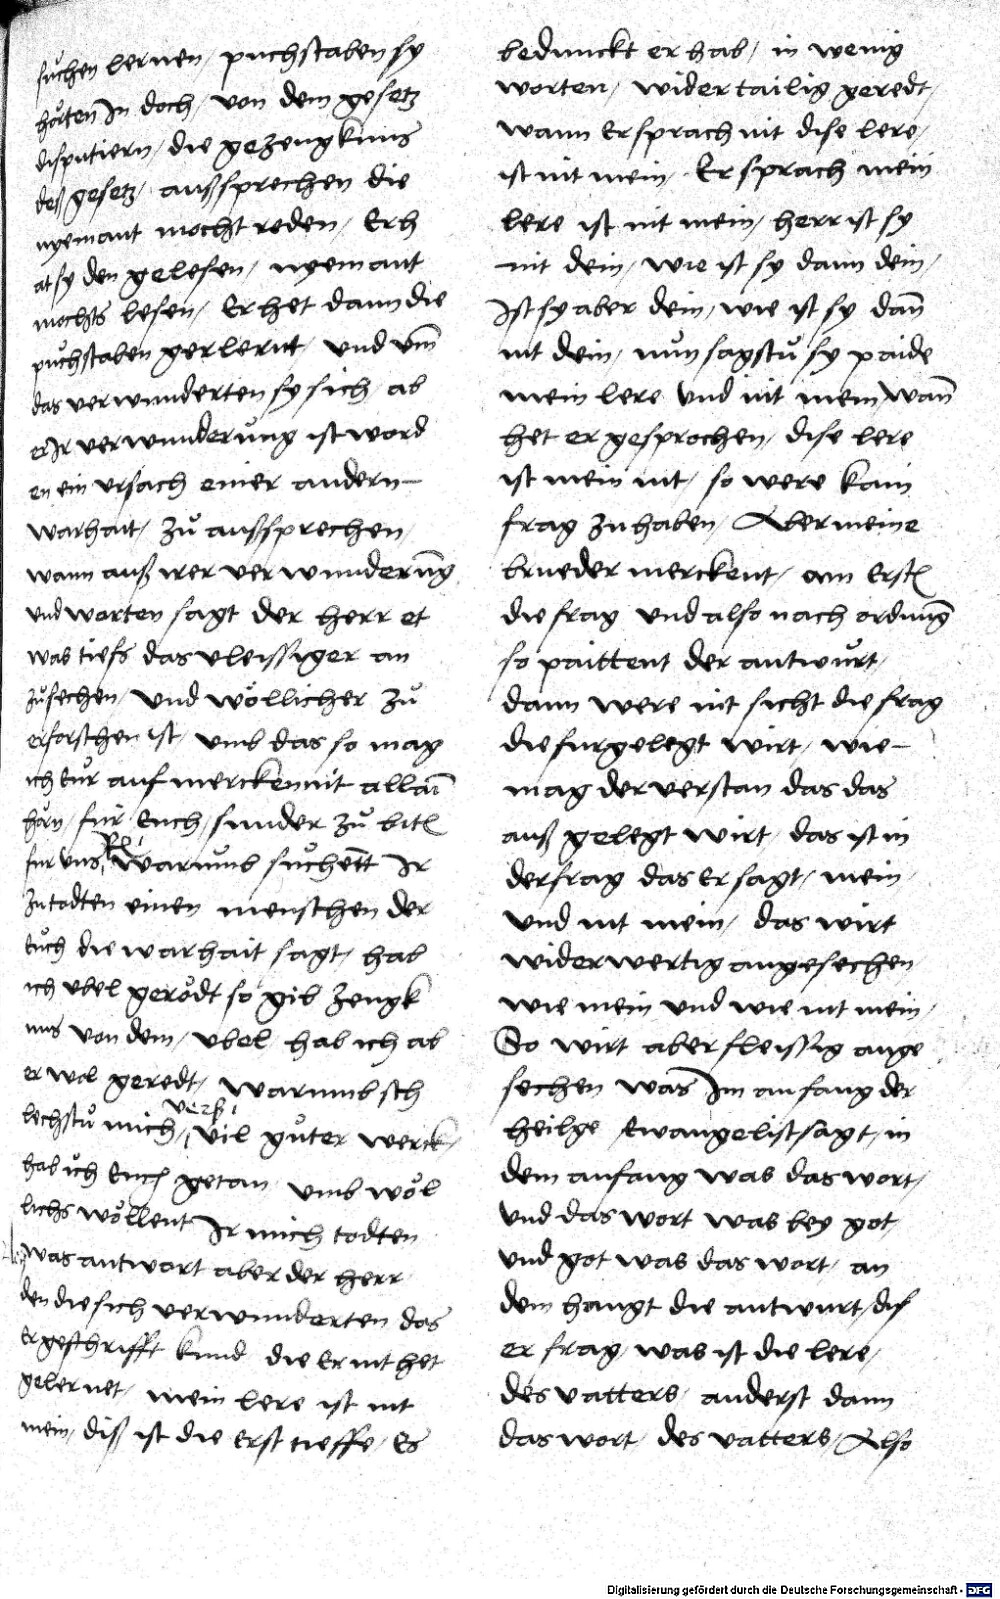 suͦchen lernen / puchstaben sy
hoͤrten In doch / von dem gesetz
disputiern / die gezeugknus
deß gesetz / außsprechen die
nyemant mocht reden / Er h
at sy den gelesen / nyemant
mochts lesen / Er het dann die
puͦchstaben gerlernt / und um̄
das verwunderten sy sich / ab
er Ir verwunderung ist word
en ein ursach einer andern –
warhait / zuͦ außsprechen /
wann auß irer verwunderūg
und worten sagt der herr et
was tiefs das vleissiger an
zuͦsechen / und woͤllicher zuͦ
erforschen ist / umb das so mag
ich Eur aufmercken mit allain
hörn / für Euch / sunder zuͦ bitt
fur uns / warumb suͦchent Ir
zu todten einen menschen der
Euch die warhait sagt / hab
ich ubel geroͤdt so gib zeugk
nus von dem / ubel hab ich ab
er wol geredt / warumb sch
lechstuͦ mich / vers' vil guͦter werck /
hab ich Euch getan umb woͤl
lichs woͤllent Ir mich todten
was antwort aber der herr /
den die sich verwunderten das
Er geschrifft kund die Er nit het
gelernet / mein lere ist nit
mein / diß ist die Erst tieffe / Es
bedunckt er hab / in wenig
worten / widertailig geredt /
wann Er sprach nit dise lere /
ist nit mein / Er sprach mein
lere ist nit mein / herr ist sy
nit dein / wie ist sy dann dein /
Ist sy aber dein / wie ist sy dan̄
nit dein / nun sagstuͦ sy paide
mein lere und nit mein / wan̄
het er gesprochen / dise lere
ist mein nit / so were kain
frag zuhaben / Aber meine
brueder merckent / am Erstn
die frag und also nach ordnung
so paittent der antwurt /
dann were nit sicht die frag
die furgelegt wirt / wie –
mag der verstan das das
auß gelegt wirt / das ist in
der frag das Er sagt / mein /
und nit mein / das wirt
widerwertig angesechen /
wie mein und wie nit mein /
So wirt aber fleissig ange
sechen was Im anfang der
heilge Ewangelist sagt / in
dem anfang was das wort /
und das wort was bey got /
und got was das wort / an
dem hangt die antwurt / dis
er frag / was ist die lere /
des vatters / anderst dann
das wort / des vatters / Also
Digitalisierung gefördert durch die Deutsche Forschungsgemeinschaft - DFG